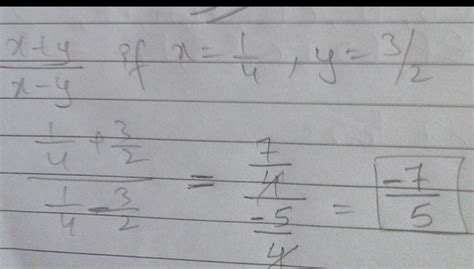 x+y/x-y if x = 1/4, y = 3/2
(1/4 + 3/2)/(1/4 - 3/2) = (7/4)/(-5/4) = -7/5